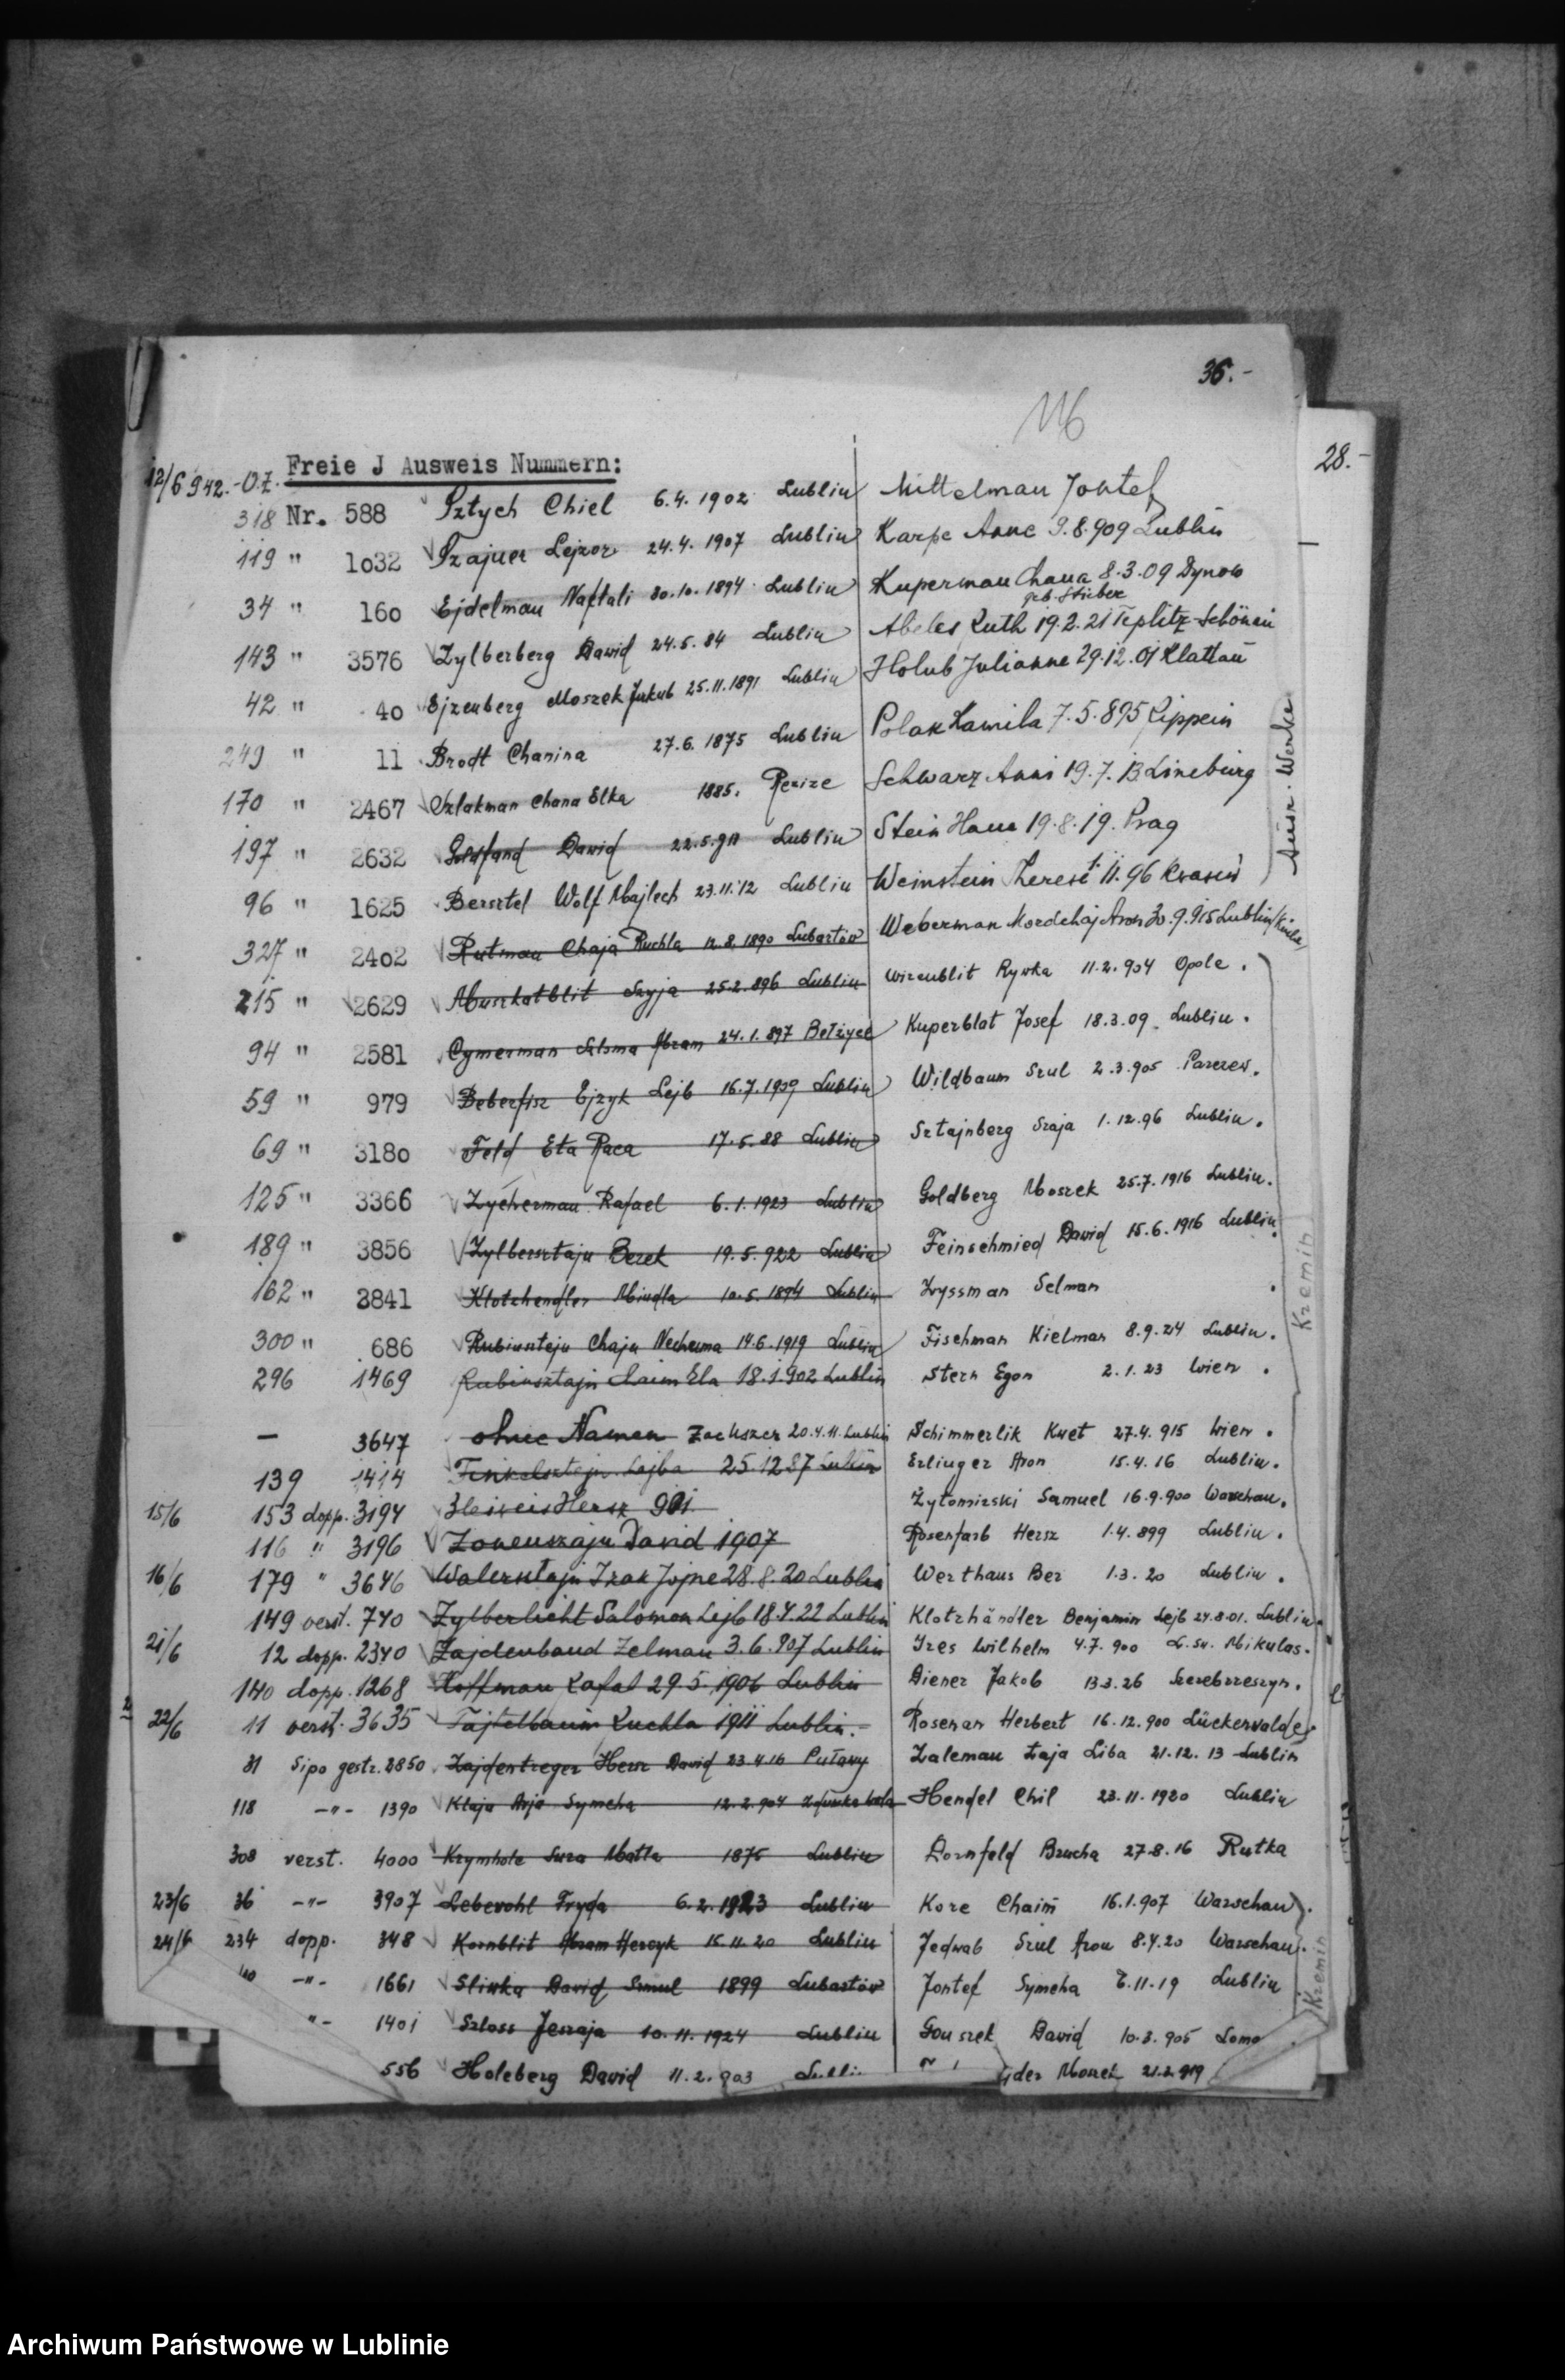 36.-
116
28.-
12/6 942. O.Z. Freie J Ausweis Nummern:
318 Nr. 588 Sztych Chiel 6.4.1902 Lublin Mittelman Jontef
119 " 1o32 Szajner Lejzor 24.4.1907 Lublin Karpe Anne 9.8.909 Lublin
34 " 16o Ejdelman Naftali 30.10.1894 Lublin Kuperman Chana 8.3.09 Dynow
geb. Stieber
143 " 3576 Zylberberg Dawid 24.5.84 Lublin Abeles Ruth 19.2.21 Teplitz-Schönau
42 " 4o Ejzenberg Moszek Jakub 25.11.1891 Lublin Holub Julianne 29.12.01 Klattau
249 " 11 Brodt Chanina 27.6.1875 Lublin Polak Kamila 7.5.895
170 " 2467 Szlakman Chana Elka 1885. Schwarz Anni 19.7.13 Lineburg
197 " 2632 Goldfand Dawid Lublin Stein Hana 19.8.19. Prag
96 " 1625 Bersztel Wolf Majlech 23.11.12 Lublin Weinstein Therese 11.96
Ausr. Werke
327 " 24o2 Rutman Chaja Ruchla 12.8.1890 Lubartów Weberman Mordchaj Aron 30.9.915 Lublin
215 " 2629 Muszkatblit Szyja 25.2.896 Lublin Wizenblit Rywka 11.2.904 Opole.
94 " 2581 Cymerman Szloma Abram 24.1.897 Bełżyce Kuperblat Josef 18.3.09. Lublin.
59 " 979 Beberfisz Ejzyk Lejb 16.7.1909 Lublin Wildbaum Szul 2.3.905 Parczew.
69 " 318o Feld Eta Raca 17.5.88 Lublin Sztajnberg Szaja 1.12.96 Lublin.
125 " 3366 Zycherman Rafael 6.1.1923 Lublin Goldberg Moszek 25.7.1916 Lublin.
189 " 3856 Zylbersztajn Berek 19.5.922 Lublin Feinschmied Dawid 15.6.1916 Lublin.
162 " 3841 Klotzhendler Mindla 10.5.1894 Lublin Zryssman Selman .
Kremin
300 " 686 Rubinsztejn Chaja Nechema 14.6.1919 Lublin Fischman Kielman 8.9.24 Lublin.
296 1469 Rubinsztajn Chaim Ela 18.1.902 Lublin Stern Egon 2.1.23 Wien .
— 3647 ohne Namen Zackszer 20.4.11. Lublin Schimmerlik Kurt 27.4.915 Wien .
139 1414 Finkelsztejn Lajba 25.12.87 Lublin Erlinger Aron 15.4.16 Lublin.
15/6 153 dopp. 3194 Hersz 901 Żytomirski Samuel 16.9.900 Warschau.
116 " 3196 Zonenszajn David 1907 Rosenfarb Hersz 1.4.899 Lublin.
16/6 179 " 3646 Walersztajn Izak Jojne 28.8.20 Lublin Werthaus Ber 1.3.20 Lublin .
149 verst. 740 Zylberlicht Salomon Lejb 18.4.22 Lublin Klotzhändler Benjamin Lejb 24.8.01. Lublin.
21/6 12 dopp. 2340 Zajdenband Zelman 3.6.907 Lublin Ires Wilhelm 4.7.900 L. Sv. Mikulas.
140 dopp. 1268 Hoffman Rafal 29.5.1906 Lublin Diener Jakob 13.3.26 Szczebrzeszyn.
22/6 11 verst. 3635 Tajtelbaum Ruchla 1911 Lublin.- Rosenan Herbert 16.12.900 Lückenwalde
31 Sipo gestr. 2850 Zajdentreger Hersz David 23.4.16 Puławy Zaleman Łaja Liba 21.12.13 Lublin
118 -"- 1390 Klaja Arja Symcha 12.2.904 Zdunska Wola Hendel Chil 23.11.1920 Lublin
308 verst. 4000 Krymhole Sura Matla 1875 Lublin Dornfeld Brucha 27.8.16 Rutka
23/6 36 -"- 3907 Lebewohl Fryda 6.2.1923 Lublin Kore Chaim 16.1.907 Warschau.
24/6 234 dopp. 348 Kornblit Abram Herszyk 15.11.20 Lublin Jedwab Szul Aron 8.4.20 Warschau.
40 -"- 1661 Sliwka David Szmul 1899 Lubartów Jontef Symcha 7.11.19 Lublin
Kremin
"- 1401 Szloss Jeszaja 10.11.1924 Lublin Gouszek David 10.3.905
556 Holeberg David 11.2.903 Lublin der Moszek 21.2.919
Archiwum Państwowe w Lublinie